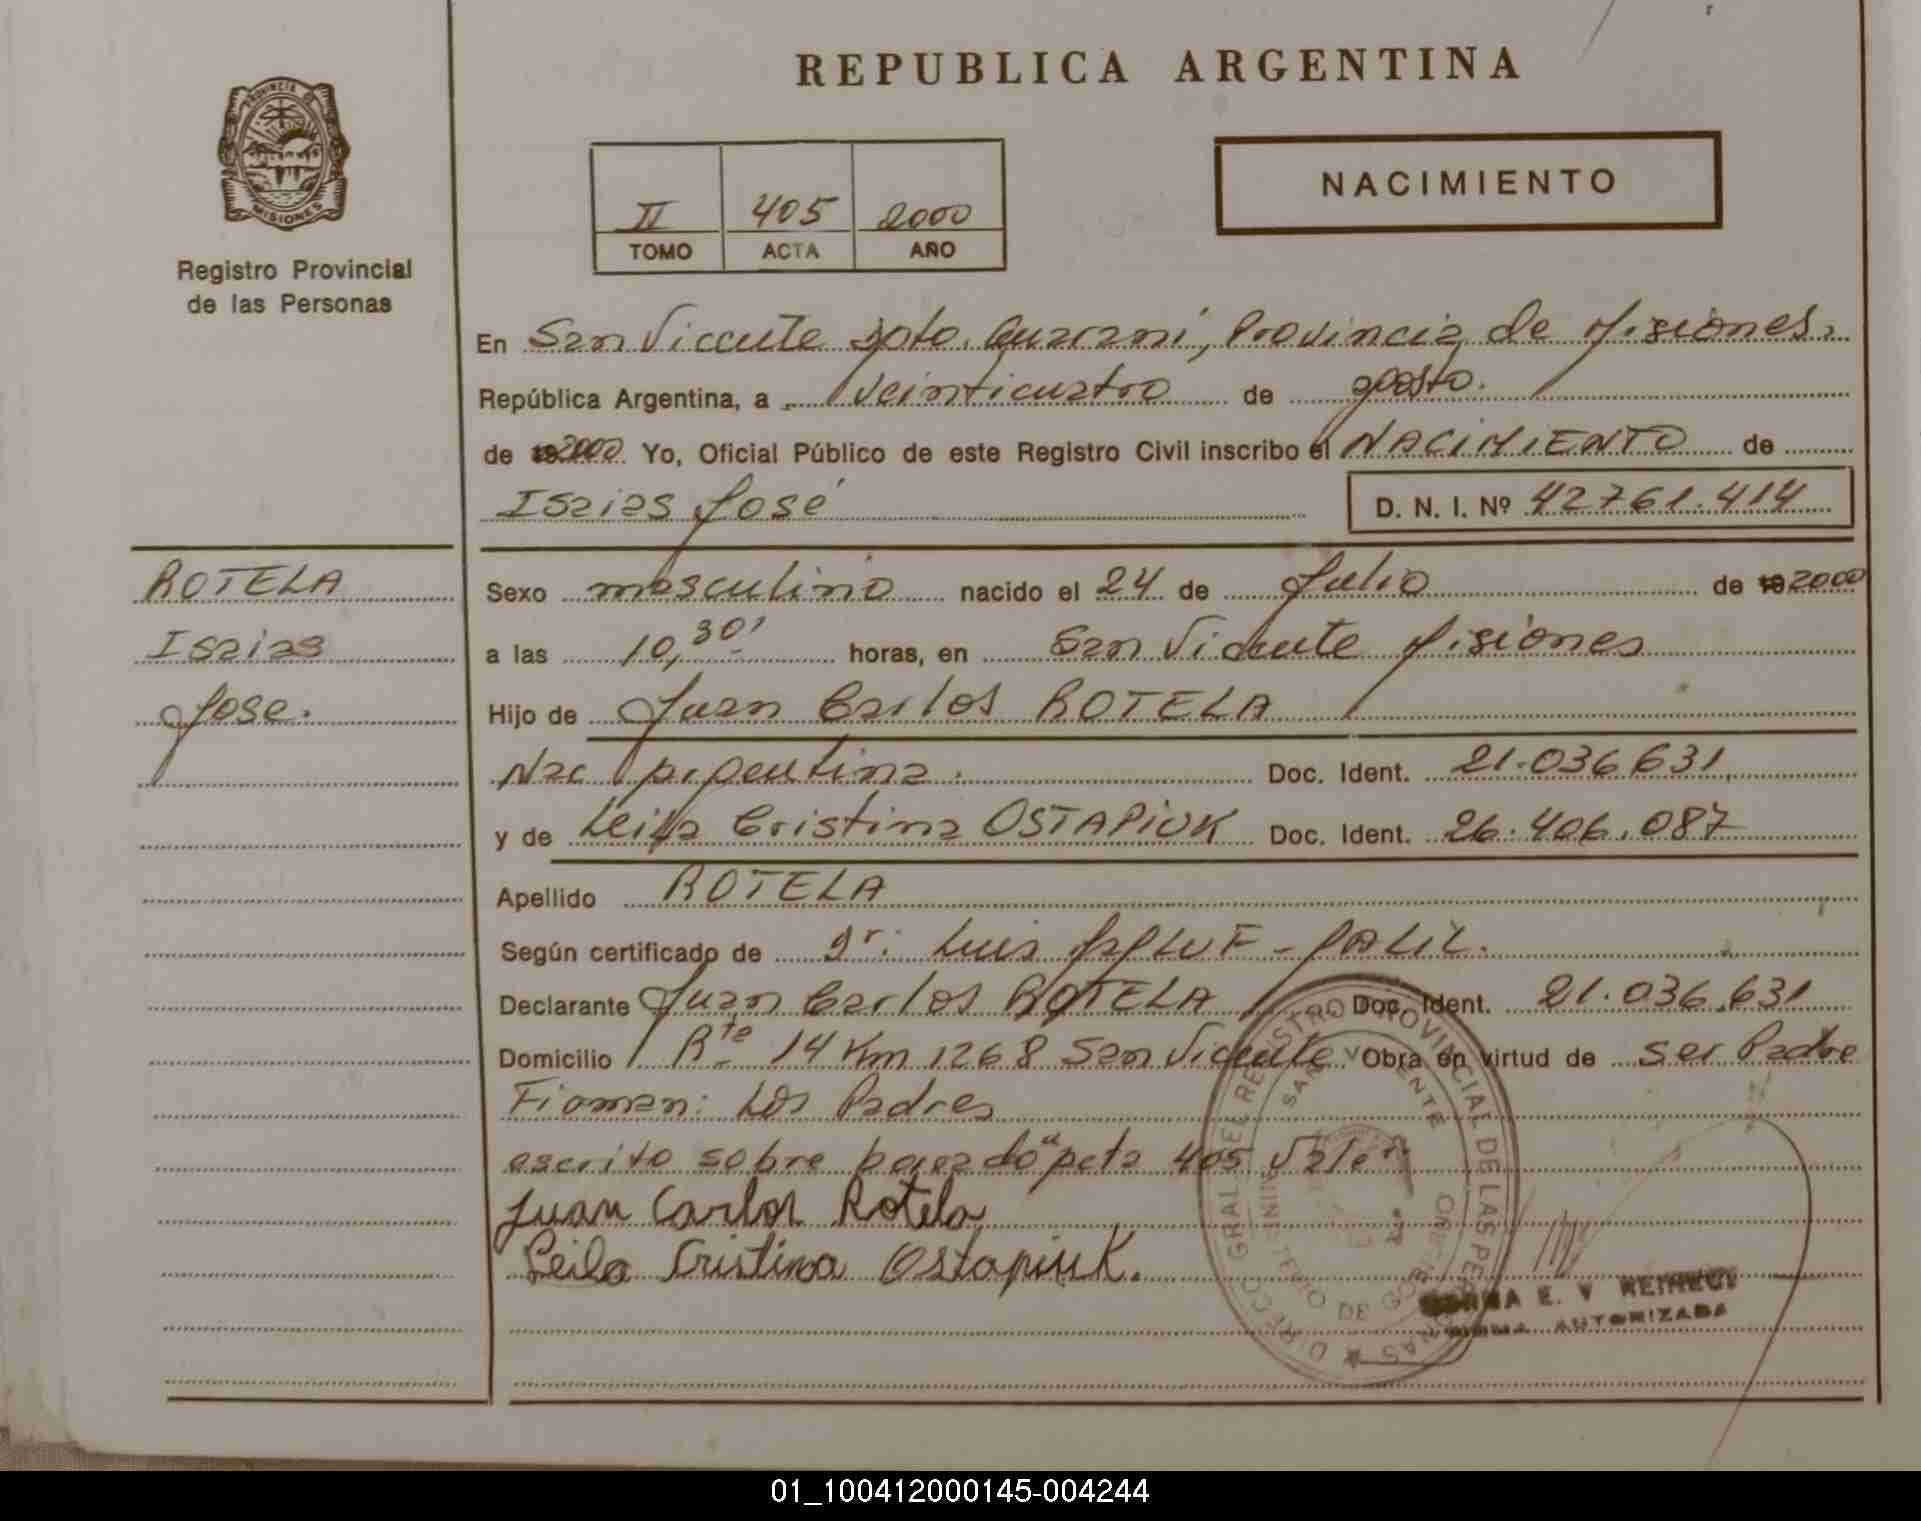 REPUBLICA ARGENTINA
PROVINCIA DE
MISIONES
Registro Provincial
de las Personas
II 405 2000
TOMO ACTA AÑO
NACIMIENTO
En San Vicente Dpto. Guaraní, Provincia de Misiones.
República Argentina, a veinticuatro de agosto.
de 192000 Yo, Oficial Público de este Registro Civil inscribo el NACIMIENTO de
Isaias José D. N. I. Nº 42761.414
ROTELA
Isaias
Jose.
Sexo masculino nacido el 24 de Julio de 192000
a las 10,30' horas, en San Vicente Misiones
Hijo de Juan Carlos ROTELA
Nac Argentina. Doc. Ident. 21.036.631
y de Leila Cristina OSTAPIUK Doc. Ident. 26.406.087
Apellido ROTELA
Según certificado de Dr. Luis
Declarante Juan Carlos ROTELA Doc. Ident. 21.036.631
Domicilio Rta 14 Km 1268 San Vicente Obra en virtud de ser Padre
Firman: Los Padres
escrito sobre "acta 405 Vale"
Juan Carlos Rotela
Leila Cristina Ostapiuk.
DIRECC. GRAL. DEL REGISTRO PROVINCIAL DE LAS PERSONAS
SAN VICENTE
MINISTERIO DE GOBIERNO
NORMA E. V.
FIRMA AUTORIZADA
01_100412000145-004244